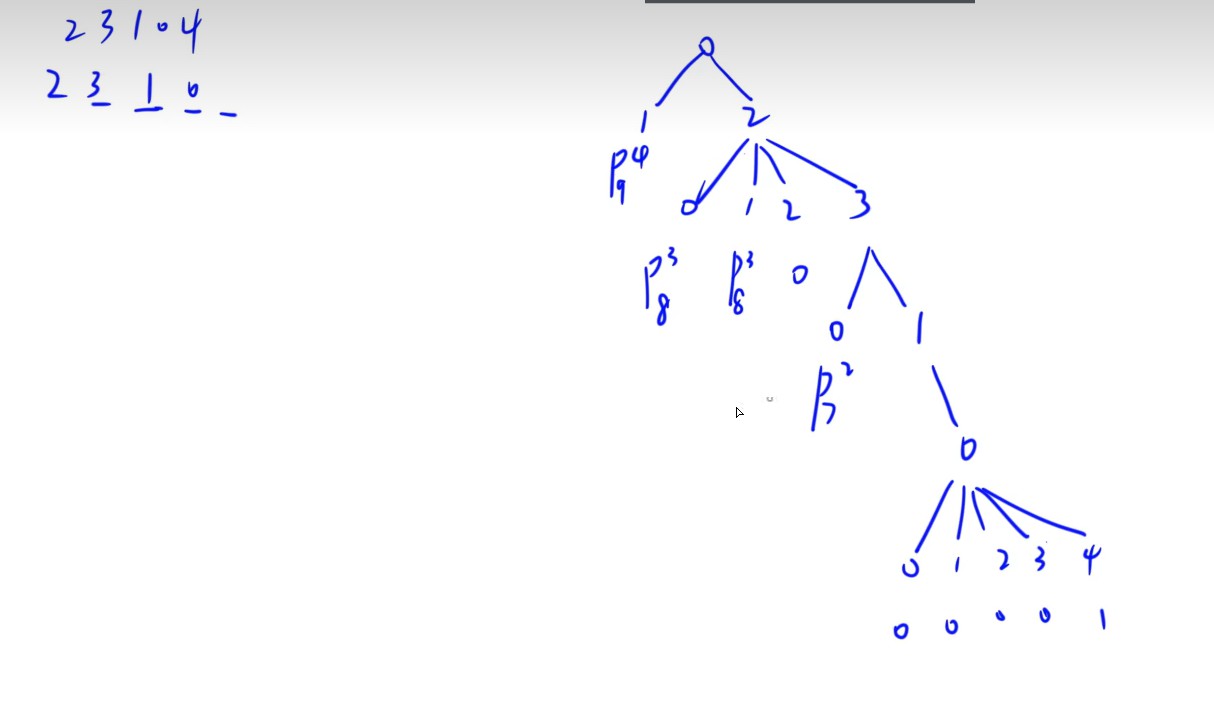 2 3 1 0 4
2 3 1 0 _
0
1 2
P_9^4
0 1 2 3
P_8^3 P_8^3 0
0 1
P_7^2
0
0 1 2 3 4
0 0 0 0 1